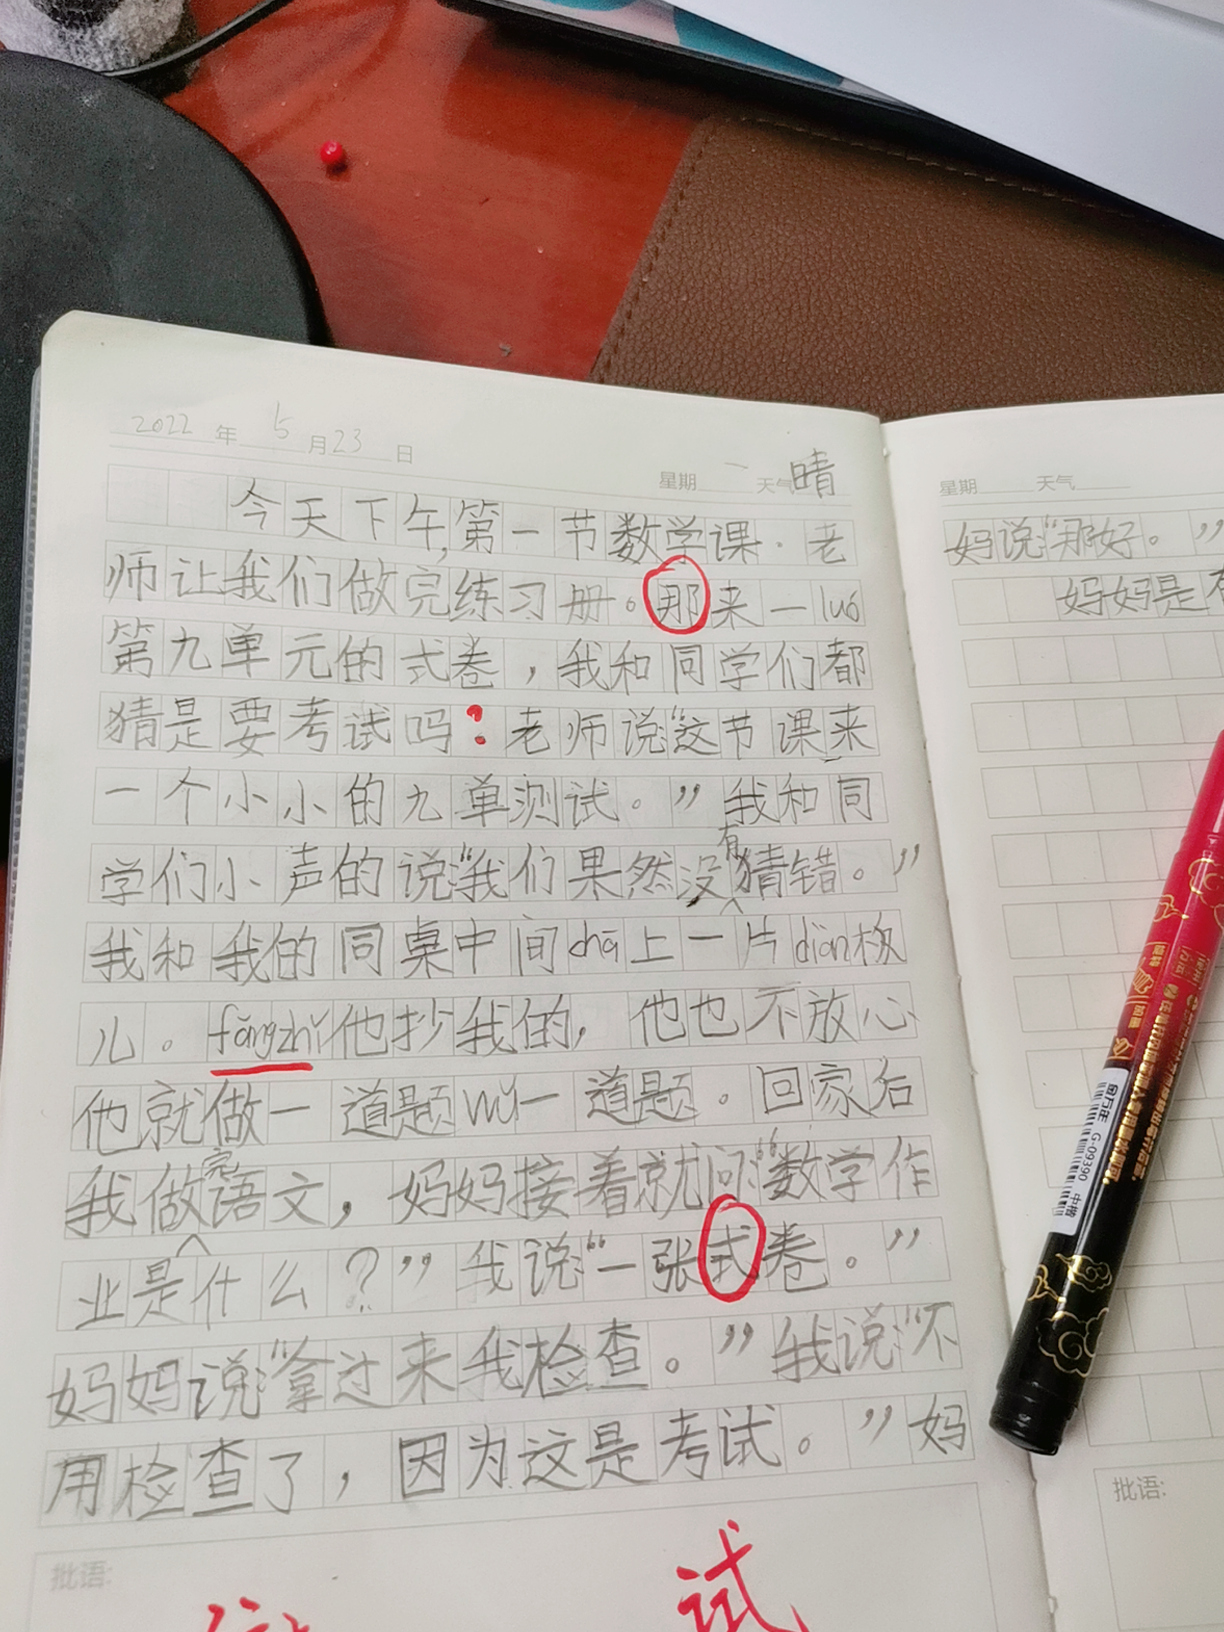 2022 年 5 月 23 日
星期 一 天气 晴
今天下午,第一节数学课.老
师让我们做完练习册。那来一luó
第九单元的式卷,我和同学们都
猜是要考试吗?老师说:“这节课来
一个小小的九单测试。”我和同
学们小声的说:“我们果然没有猜错。”
我和我的同桌中间chā上一片diàn板
儿。fángzhǐ他抄我的,他也不放心
他就做一道题wǔ一道题。回家后
我做完语文,妈妈接着就问:“数学作
业是什么?”我说:“一张式卷。”
妈妈说:“拿过来我检查。”我说:“不
用检查了,因为这是考试。”妈
批语:
试
星期 天气
妈说:“那好。”
妈妈是
批语:
G-09390 中楷